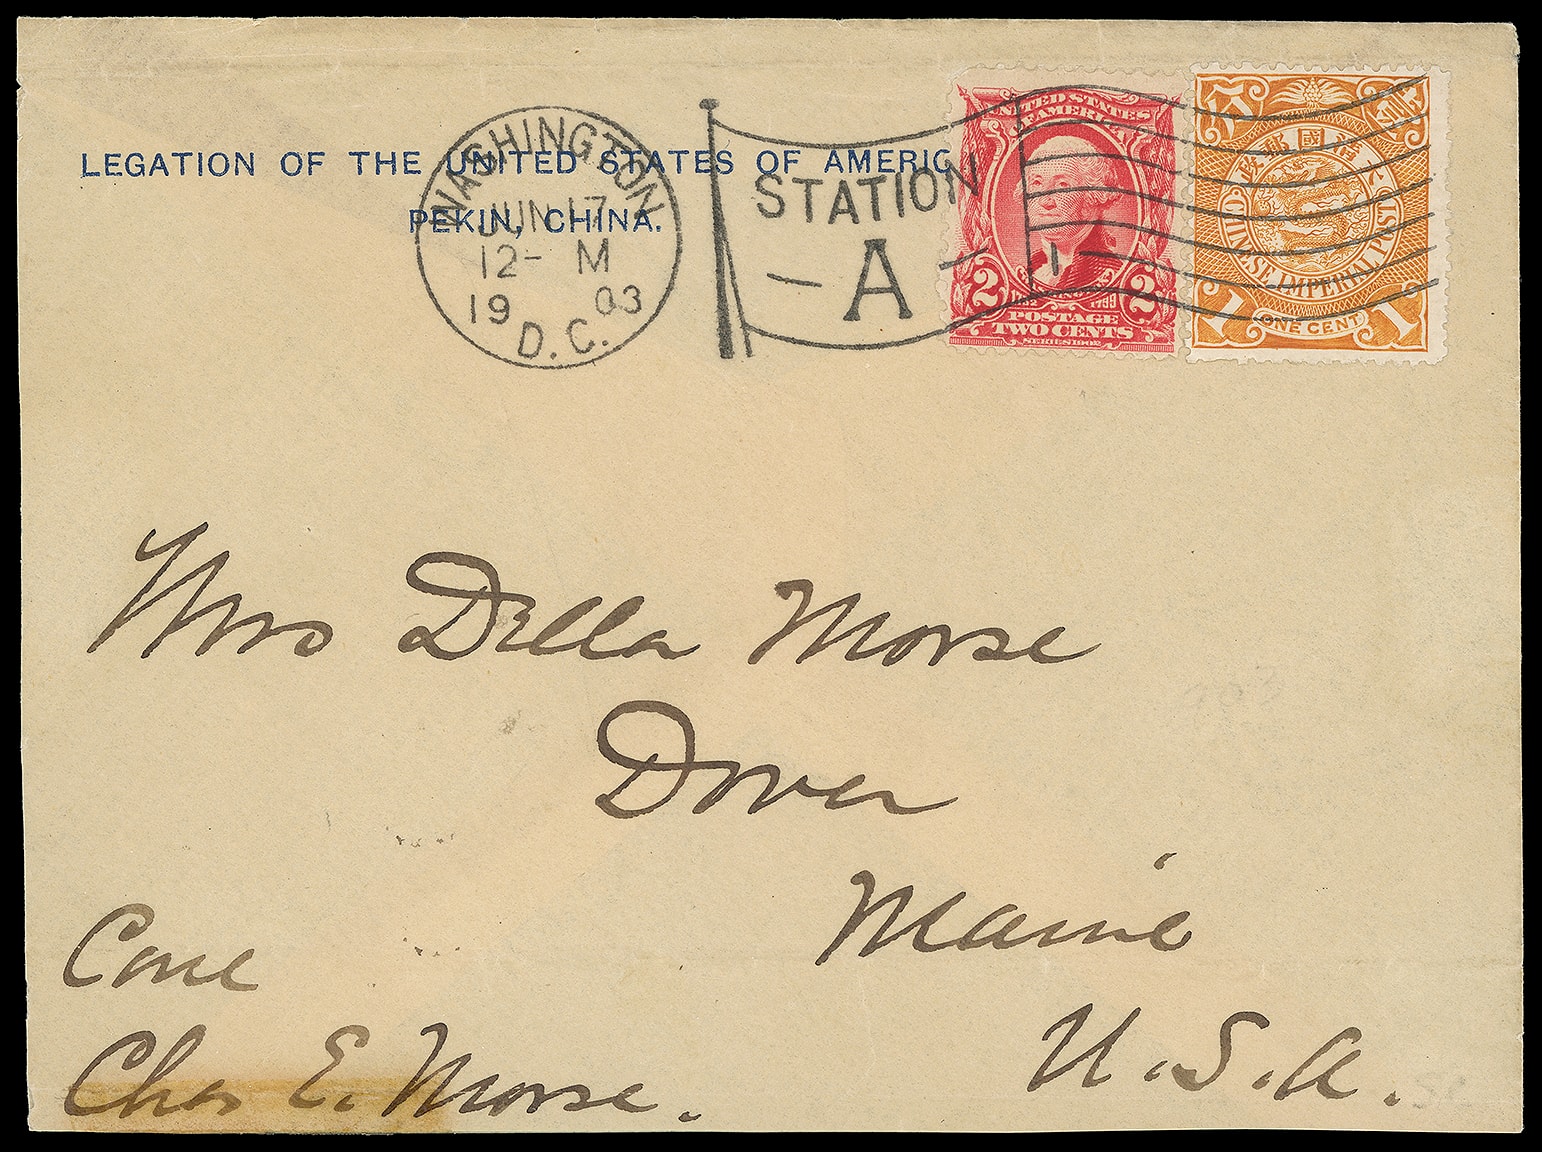 LEGATION OF THE UNITED STATES OF AMERIC
PEKIN, CHINA.
WASHINGTON
JUN 17
12- M
1903
D.C.
STATION
- A -
1
UNITED STATES
OF AMERICA
2 2
1799
POSTAGE
TWO CENTS
SERIES 1902
CHINESE IMPERIAL POST
1 1
ONE CENT
Mrs Della Morse
Dover
Maine
U.S.A.
Care
Chas E. Morse.